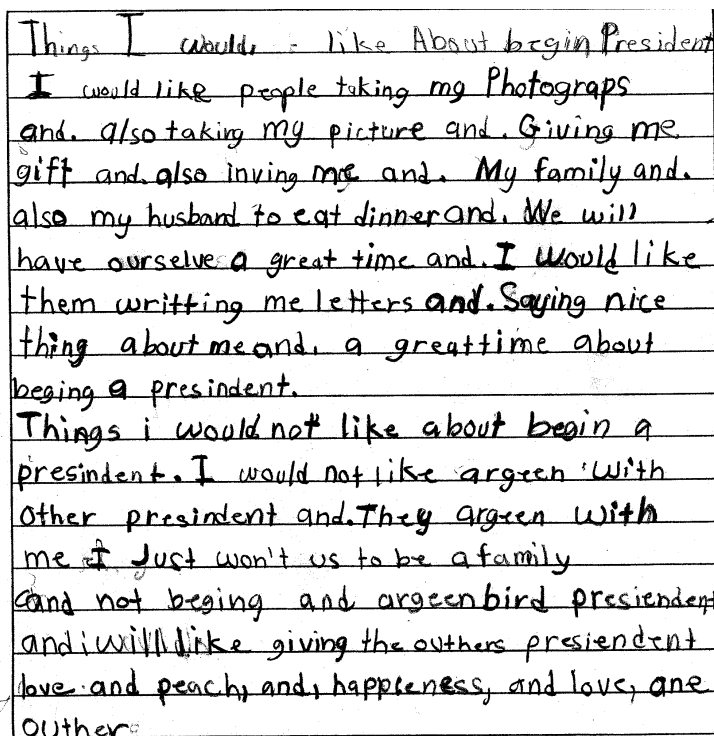 Things I would, like About begin President
I would like people taking my Photograps
and. also taking my picture and. Giving me
gift and. also inving me and. My family and.
also my husband to eat dinner and. We will
have ourselve a great time and. I would like
them writting me letters and. Saying nice
thing about me and. a great time about
beging a presindent.
Things i would not like about begin a
presindent. I would not like argeen with
other presindent and. They argeen with
me I Just won't us to be a family
and not beging and argeen bird presiendent
and i will like giving the outhers presiendent
love and peach, and, happieness, and love, ane
outher